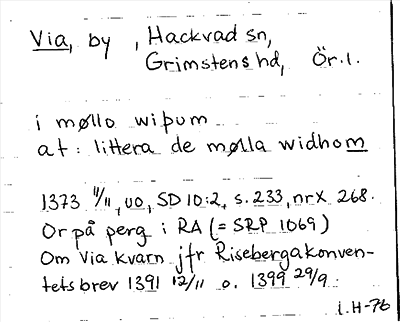 Via, by , Hackvad sn,
Grimstens hd, Ör.l.
i møllo wiþum
at: littera de mølla widhom
1373 11/11, uo, SD 10:2, s. 233, nr X 268.
Or på perg i RA (= SRP 1069)
Om Via kvarn jfr Risebergakonven-
tets brev 1391 12/11 o. 1399 29/9.
I.H-76